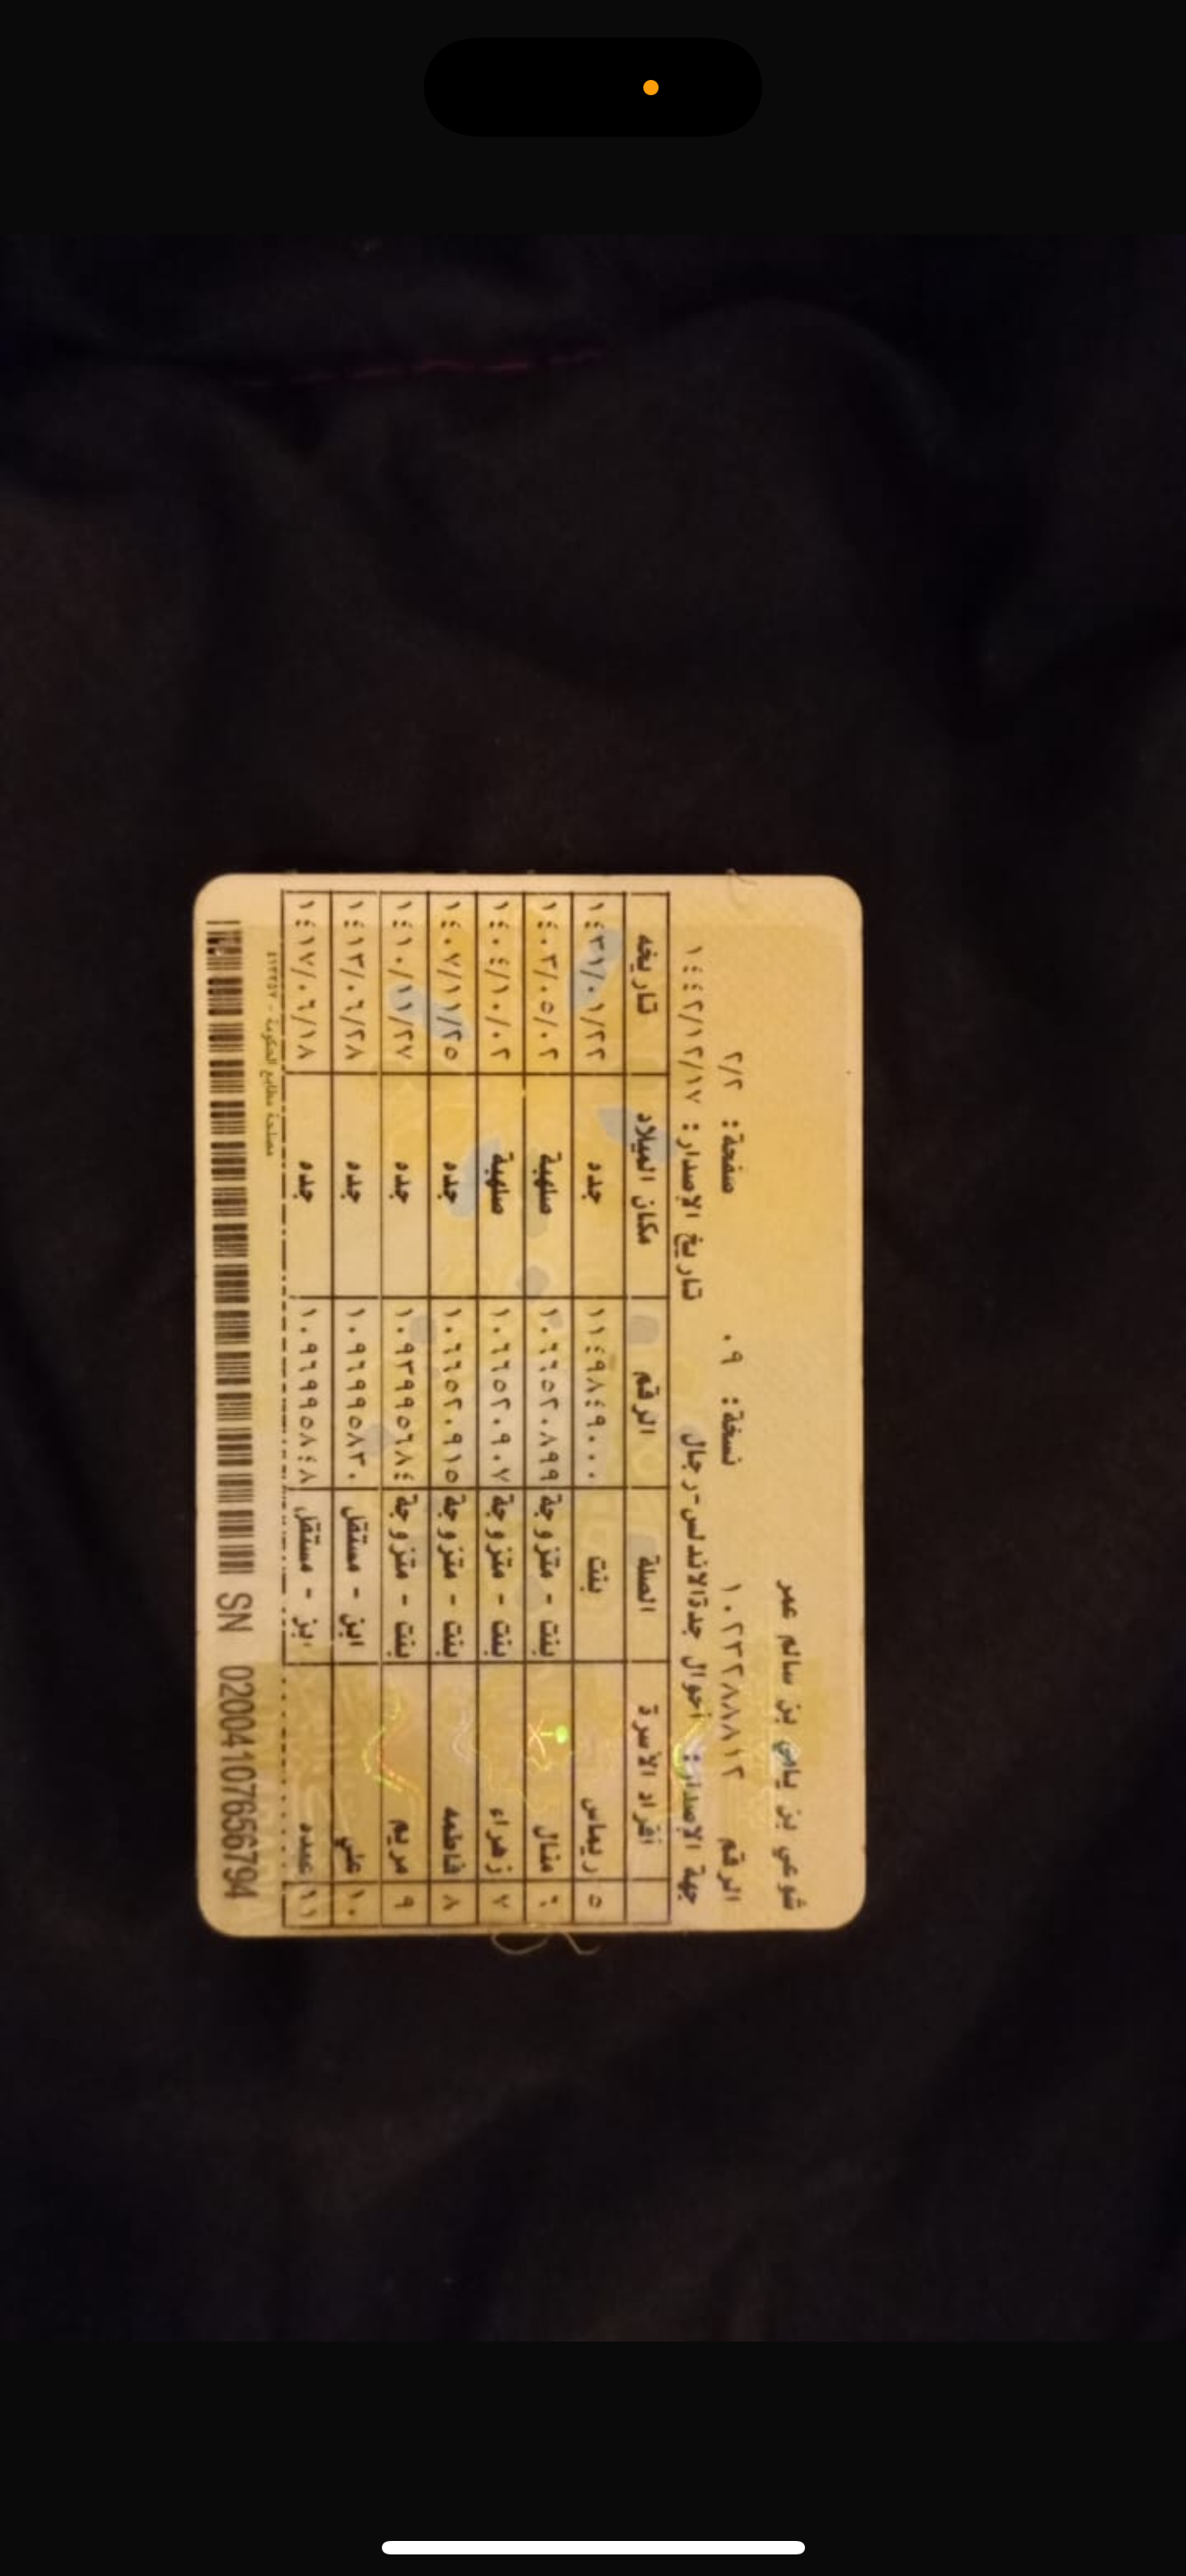 شوعي بن ياس بن سالم عمر
الرقم ١٠٢٣٢٨٨٨١٢ نسخة: ٠٩ صفحة: ٢/٢
جهة الإصدار: أحوال جدةالاندلس-رجال تاريخ الإصدار: ١٤٤٢/١٢/١٧
أفراد الأسرة الصلة الرقم مكان الميلاد تاريخه
٥ ريماس بنت ١١٤٩٨٤٩٠٠٠ جده ١٤٣١/٠١/٢٢
٦ منال بنت - متزوجة ١٠٦٦٥٢٠٨٩٩ صلهبة ١٤٠٣/٠٥/٠٢
٧ زهراء بنت - متزوجة ١٠٦٦٥٢٠٩٠٧ صلهبة ١٤٠٤/١٠/٠٢
٨ فاطمه بنت - متزوجة ١٠٦٦٥٢٠٩١٥ جده ١٤٠٧/١١/٢٥
٩ مريم بنت - متزوجة ١٠٩٣٩٩٥٦٨٤ جده ١٤١٠/١١/٢٧
١٠ علي ابن - مستقل ١٠٩٦٩٩٥٨٣٠ جده ١٤١٣/٠٦/٢٨
١١ عبده ابن - مستقل ١٠٩٦٩٩٥٨٤٨ جده ١٤١٧/٠٦/١٨
مصلحة مطابع الحكومة -
SN 02004107656794